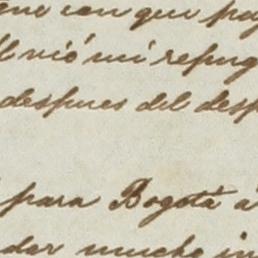 con que pa
vió mi repug
despues del desp
para Bogotá á
dar mucho in